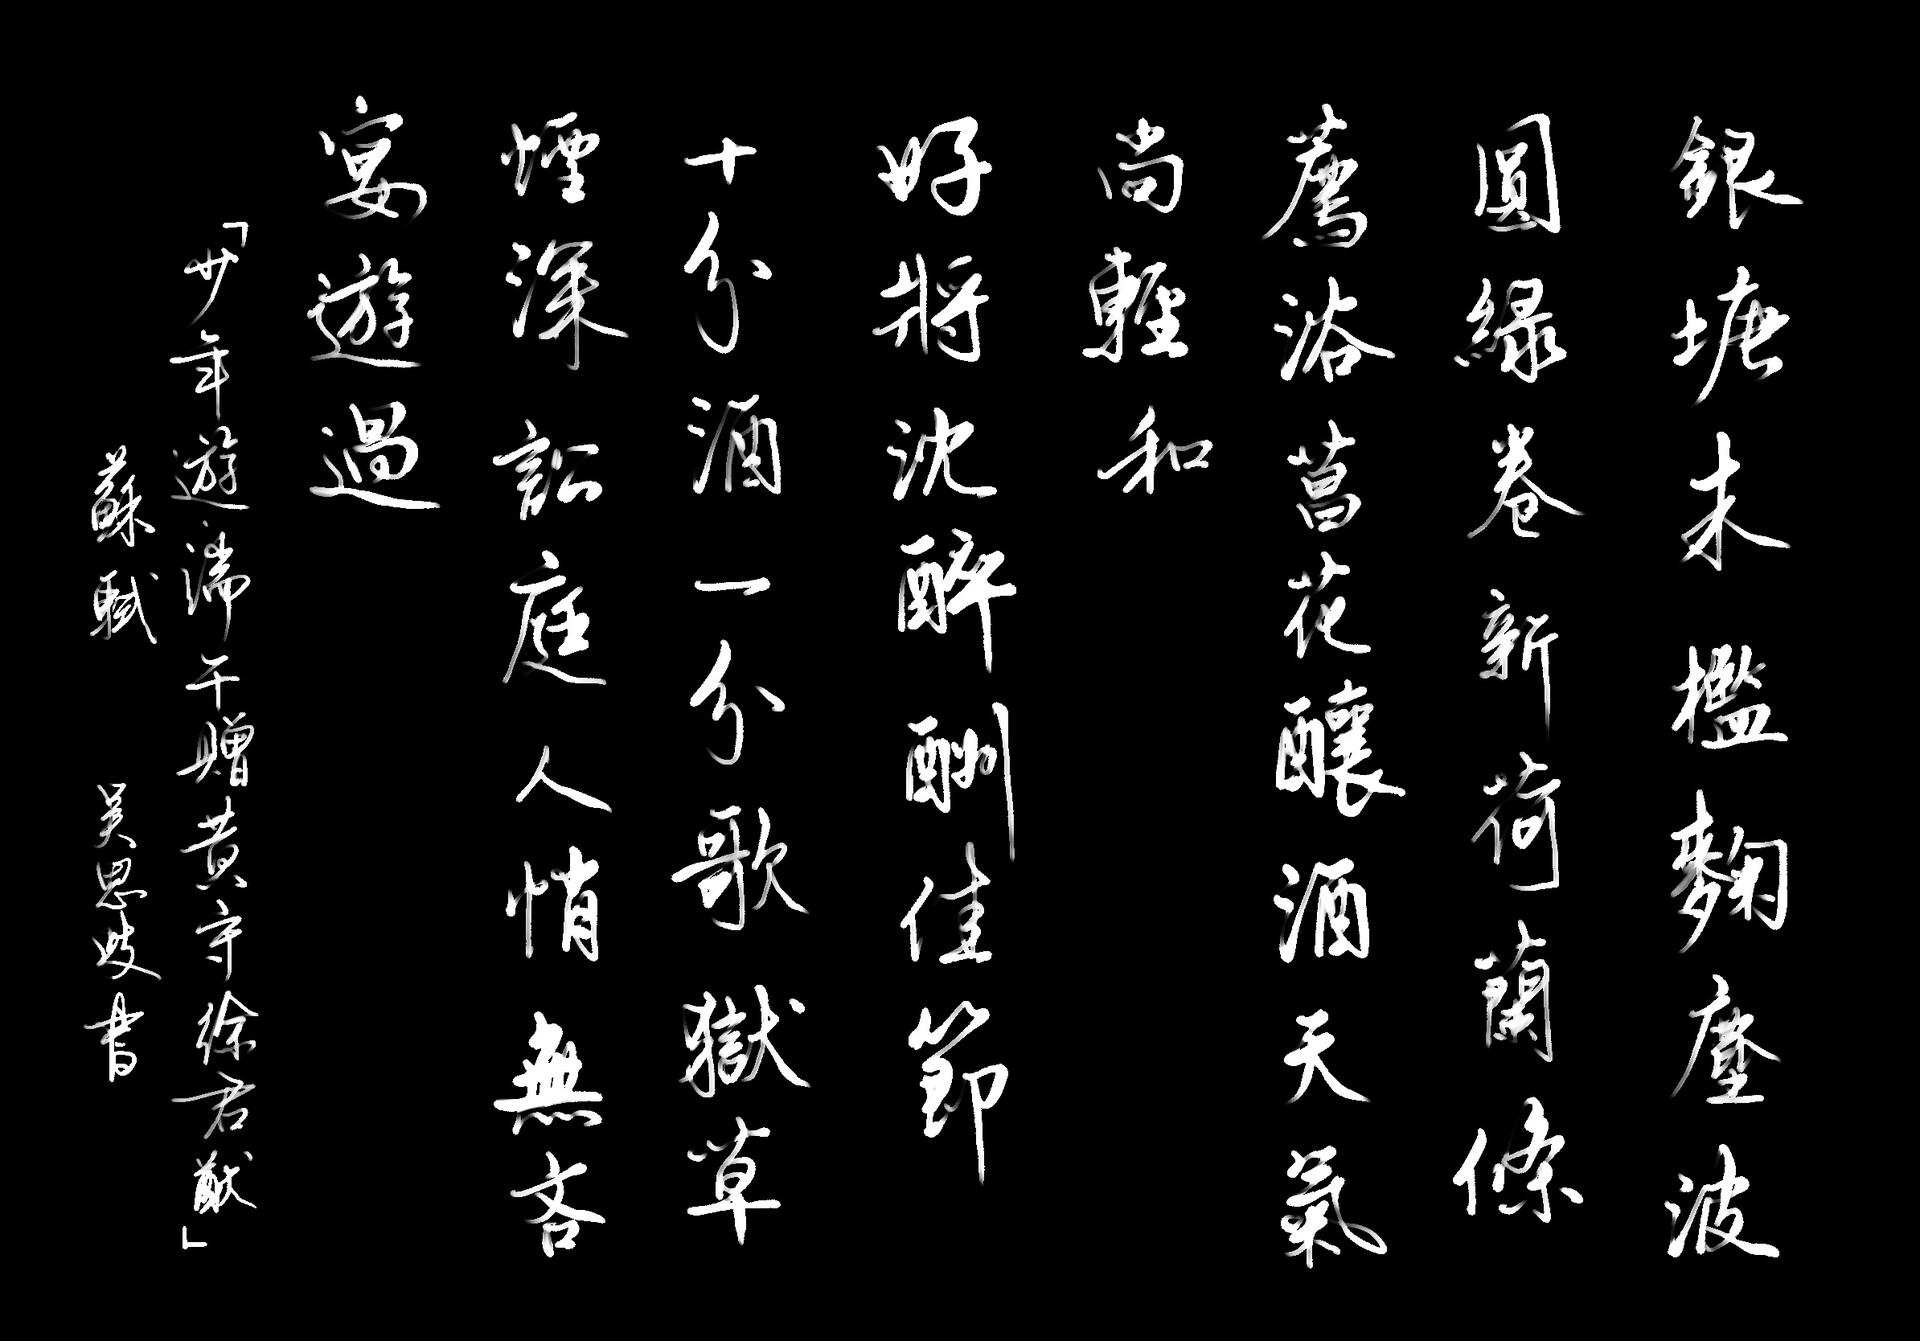 銀塘朱檻麴塵波
圓綠卷新荷蘭條
薦浴菖花釀酒天氣
尚輕和
好將沈醉酬佳節
十分酒一分歌獄草
煙深訟庭人悄無吝
宴遊過
「少年遊·端午贈黃守徐君猷」
蘇軾 吳思歧書